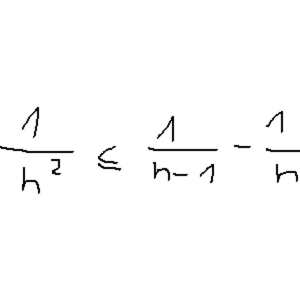 1/n² ≤ 1/(n-1) - 1/n